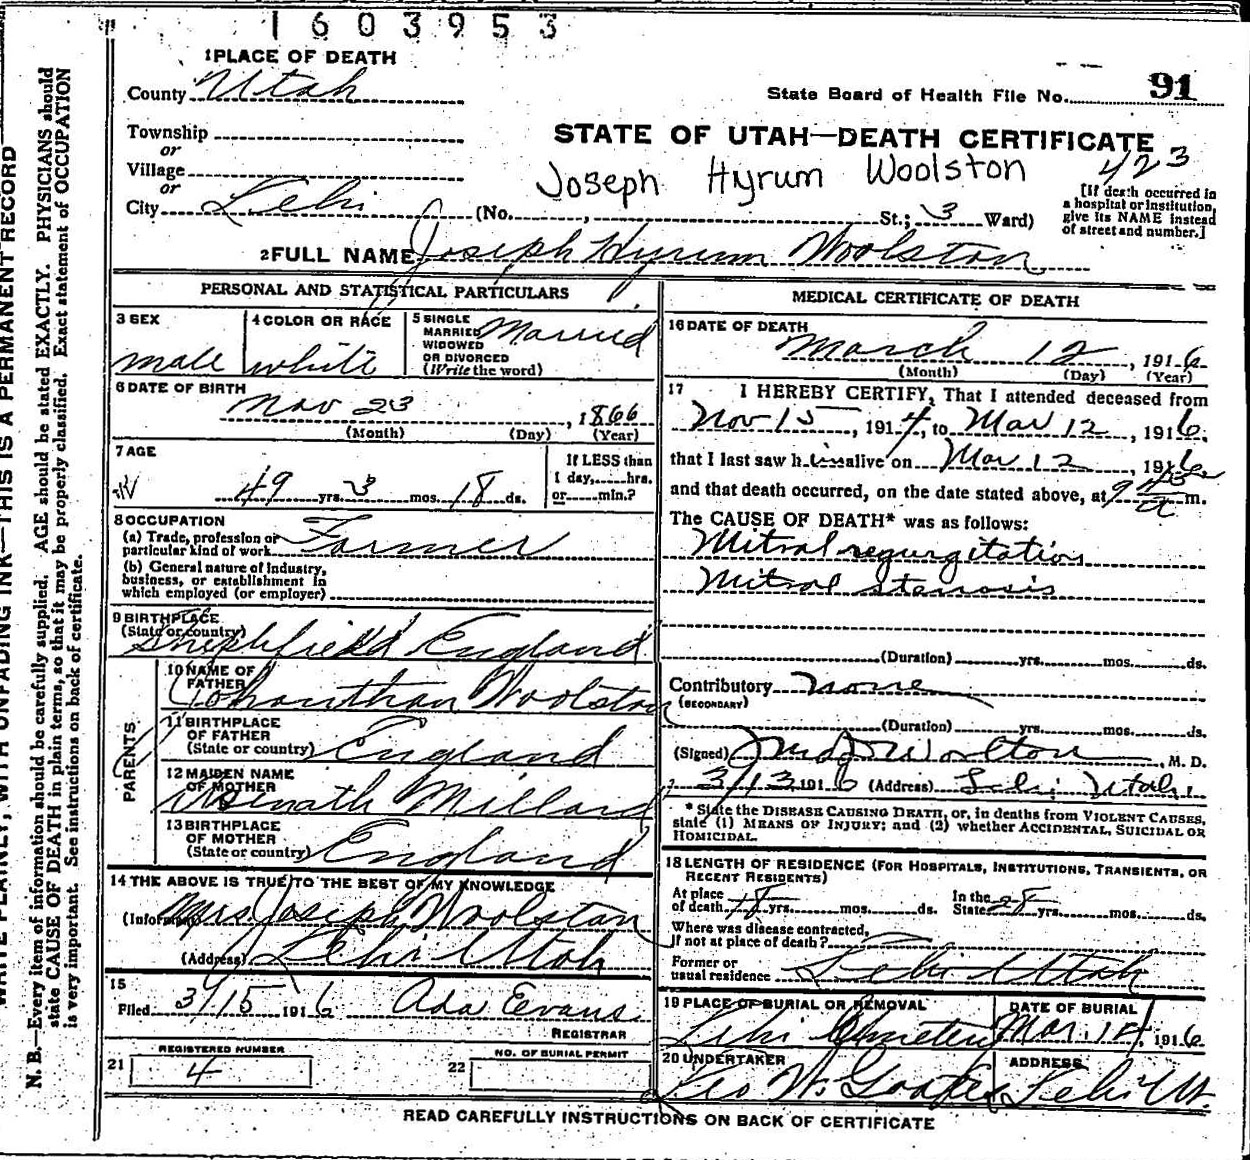 1603953
1 PLACE OF DEATH
County Utah
State Board of Health File No. 91
Township
or
Village
or
City Lehi (No. , St.; 3 Ward)
STATE OF UTAH—DEATH CERTIFICATE
Joseph Hyrum Woolston 423
[If death occurred in
a hospital or institution,
give its NAME instead
of street and number.]
2 FULL NAME Joseph Hyrum Woolston
PERSONAL AND STATISTICAL PARTICULARS
3 SEX
male
4 COLOR OR RACE
white
5 SINGLE
MARRIED
WIDOWED
OR DIVORCED
(Write the word)
Married
6 DATE OF BIRTH
Nov 23, 1866
(Month) (Day) (Year)
7 AGE
49 yrs. 3 mos. 18 ds.
If LESS than
1 day, hrs.
or min.?
8 OCCUPATION
(a) Trade, profession or
particular kind of work Farmer
(b) General nature of industry,
business, or establishment in
which employed (or employer)
9 BIRTHPLACE
(State or country)
Shephfield England
PARENTS
10 NAME OF
FATHER
Johnanthan Woolston
11 BIRTHPLACE
OF FATHER
(State or country) England
12 MAIDEN NAME
OF MOTHER
Asenath Millard
13 BIRTHPLACE
OF MOTHER
(State or country) England
14 THE ABOVE IS TRUE TO THE BEST OF MY KNOWLEDGE
(Informant) Mrs. Joseph Woolston
(Address) Lehi Utah
15
Filed 3/15 1916 Ada Evans
REGISTRAR
REGISTERED NUMBER
21 4
NO. OF BURIAL PERMIT
22
MEDICAL CERTIFICATE OF DEATH
16 DATE OF DEATH
March 12, 1916
(Month) (Day) (Year)
17 I HEREBY CERTIFY, That I attended deceased from
Nov 15, 1914, to Mar 12, 1916,
that I last saw him alive on Mar 12, 1916
and that death occurred, on the date stated above, at 9 45 a m.
The CAUSE OF DEATH* was as follows:
Mitral regurgitation
Mitral Stenosis
(Duration) yrs. mos. ds.
Contributory none
(SECONDARY)
(Duration) yrs. mos. ds.
(Signed) Worlton, M. D.
3/13 1916 (Address) Lehi Utah
* State the DISEASE CAUSING DEATH, or, in deaths from VIOLENT CAUSES,
state (1) MEANS OF INJURY; and (2) whether ACCIDENTAL, SUICIDAL OR
HOMICIDAL.
18 LENGTH OF RESIDENCE (FOR HOSPITALS, INSTITUTIONS, TRANSIENTS, OR
RECENT RESIDENTS)
At place
of death 18 yrs. mos. ds.
In the
State 28 yrs. mos. ds.
Where was disease contracted,
If not at place of death?
Former or
usual residence Lehi Utah
19 PLACE OF BURIAL OR REMOVAL
Lehi Cemetery
DATE OF BURIAL
Mar. 14, 1916
20 UNDERTAKER
Geo W. Goates
ADDRESS
Lehi Ut.
READ CAREFULLY INSTRUCTIONS ON BACK OF CERTIFICATE
WRITE PLAINLY, WITH UNFADING INK—THIS IS A PERMANENT RECORD
N. B.—Every item of information should be carefully supplied. AGE should be stated EXACTLY. PHYSICIANS should
state CAUSE OF DEATH in plain terms, so that it may be properly classified. Exact statement of OCCUPATION
is very important. See instructions on back of certificate.